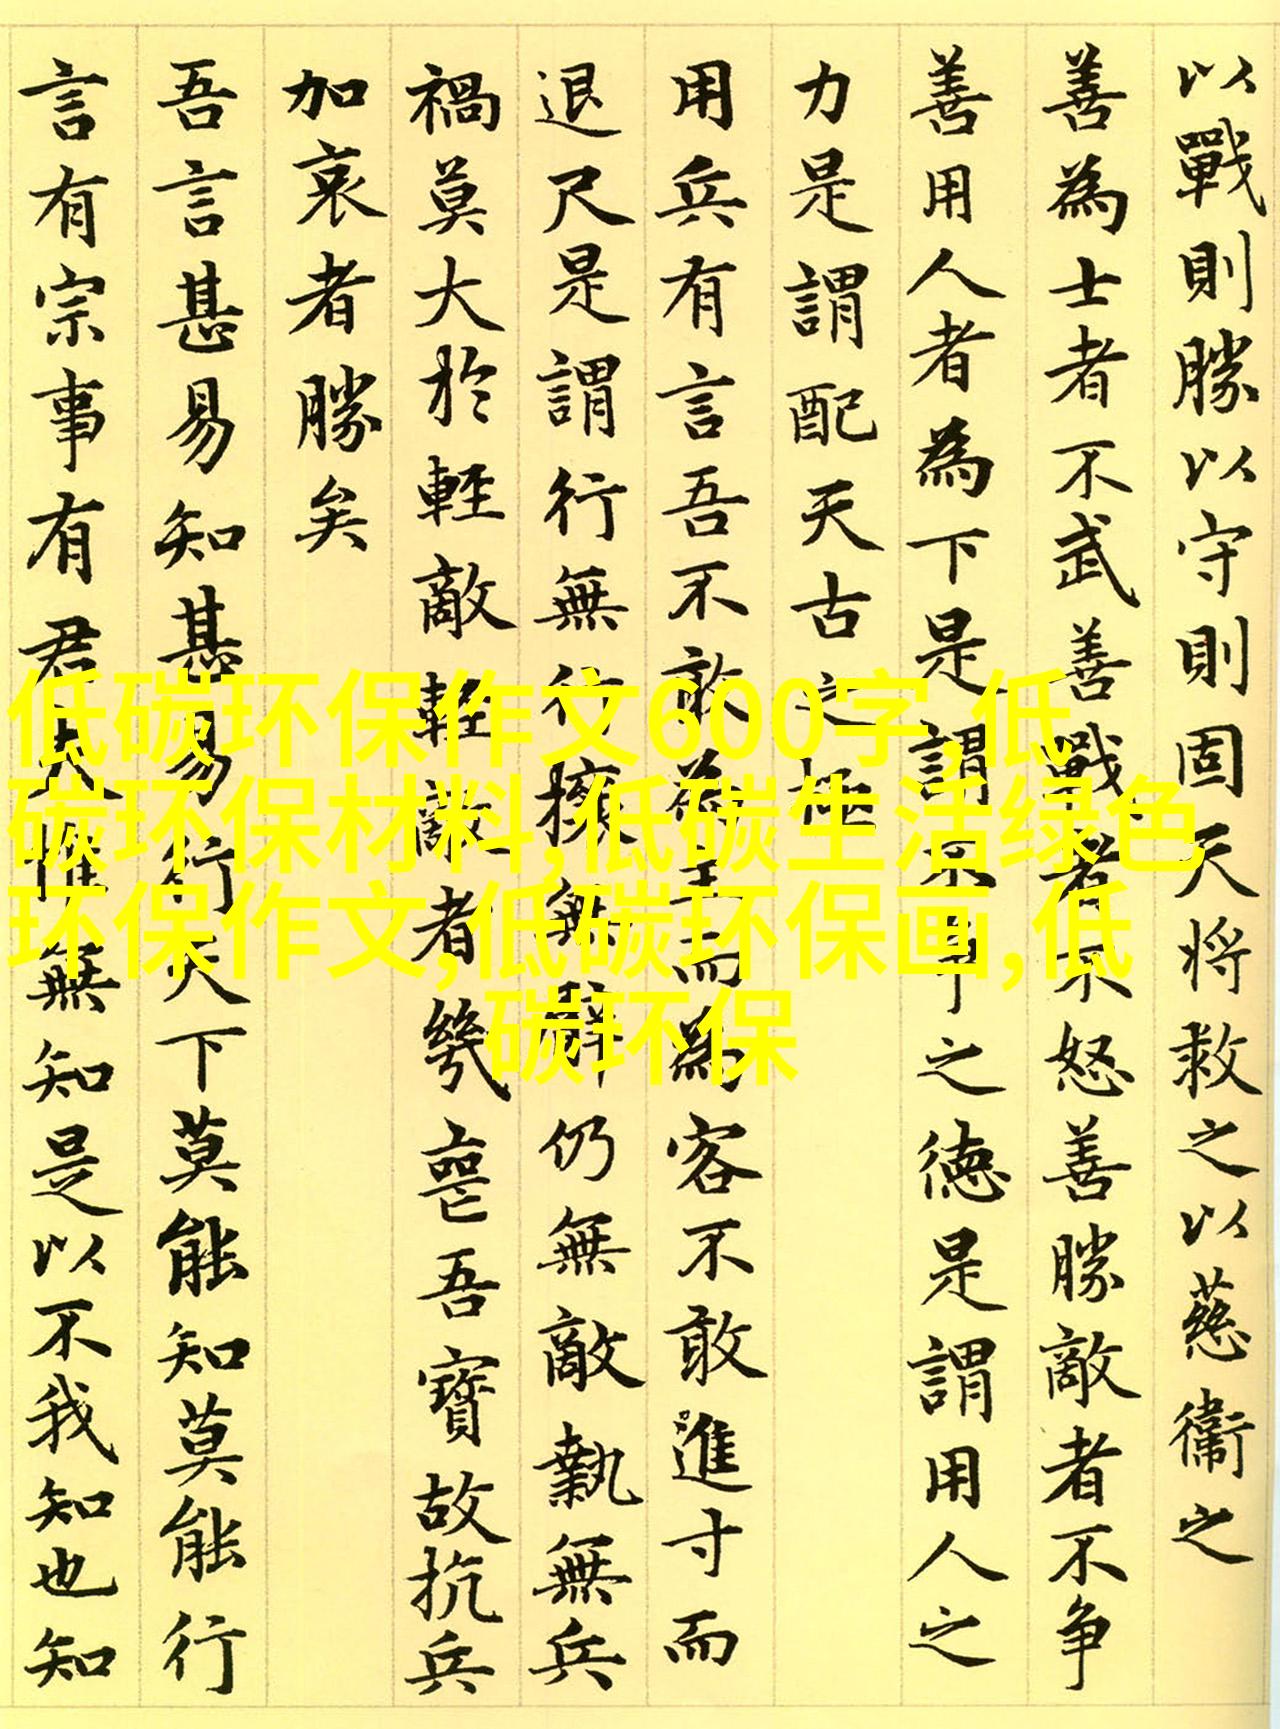 以戰則勝以守則固天將救之以慈衞之
善為士者不武善戰者不怒善勝敵者不争
善用人者為下是謂不争之德是謂用人之
力是謂配天古之極
用兵有言吾不敢為主而為客不敢進寸而
退尺是謂行無行攘無臂仍無敵執無兵
禍莫大於輕敵輕敵者幾喪吾寶故抗兵
加哀者勝矣
吾言甚易知甚易行天下莫能知莫能行
言有宗事有君夫惟無知是以不我知也知
低碳环保作文600字,低
碳环保材料,低碳生活绿色
环保作文,低碳环保画,低
碳环保